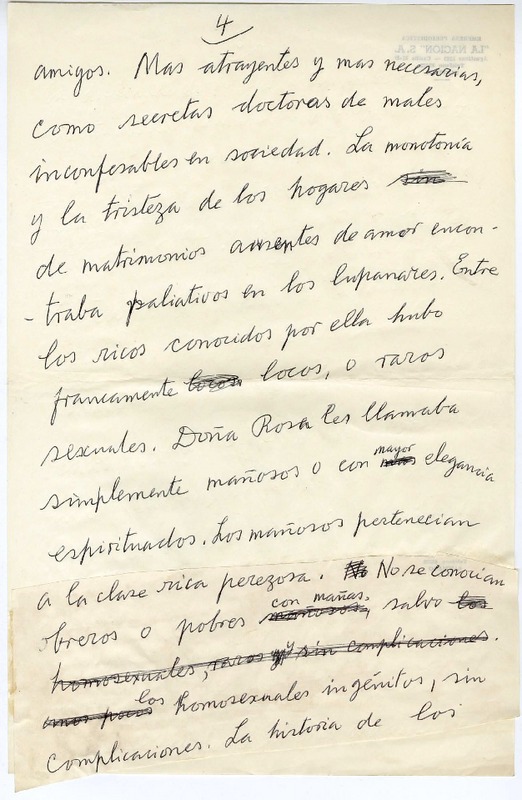 4
EMPRESA PERIODISTICA
"LA NACION" S.A.
amigos. Mas atrayentes y mas necesarias,
como secretas doctoras de males
inconfesables en sociedad. La monotonía
y la tristeza de los hogares sin
de matrimonios ausentes de amor encon-
-traba paliativos en los lupanares. Entre
los ricos conocidos por ella hubo
francamente locos, locos, o raros
sexuales. Doña Rosa les llamaba
simplemente mañosos o con mayor elegancia
espirituados. Los mañosos pertenecian
a la clase rica perezosa. No se conocían
obreros o pobres con mañas, mañosos, salvo los
homosexuales, raros y sin complicaciones.
los homosexuales ingénitos, sin
complicaciones. La historia de los